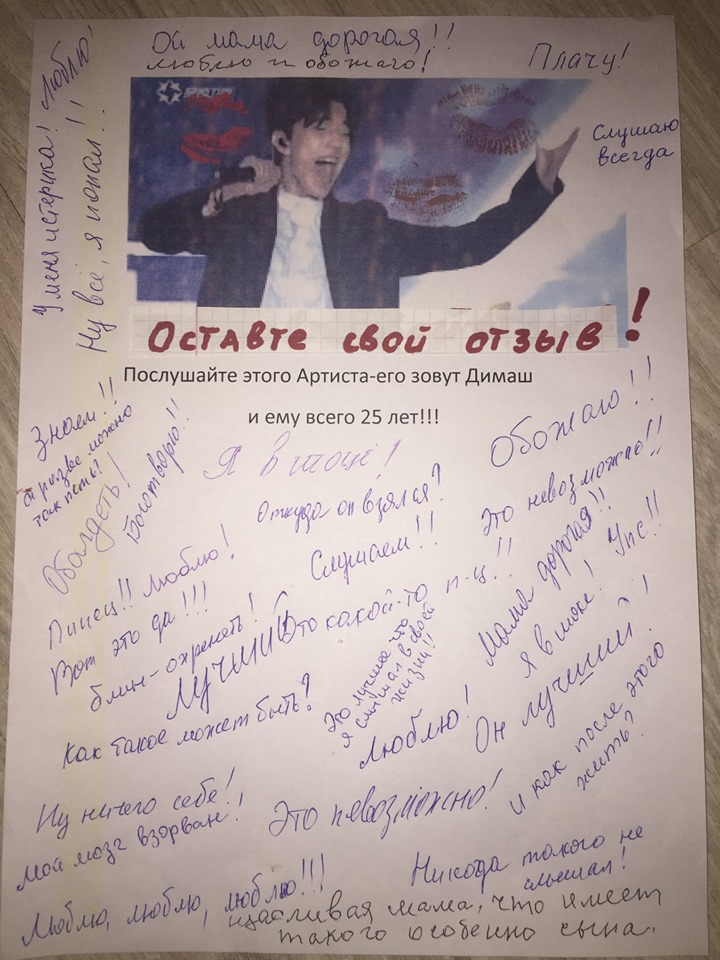 Ой мама дорогая!!
люблю и обожаю!
Плачу!
Слушаю
всегда
У меня истерика! Люблю!
Ну всё, я попал..!!
Оставте свой отзыв!
Послушайте этого Артиста-его зовут Димаш
и ему всего 25 лет!!!
Знаем!!
а разве можно
так петь?
Обалдеть!
Боготворю!!
Я в шоке!
Обожаю!!
Откуда он взялся?
Это невозможно!!
Слушаем!!
Пипец!! Люблю!
Вот это да!!!
блин-охренеть!
Лучший
Это какой-то п-ц!!
Мама дорогая!!
Упс!!
Как такое может быть?
Это лучшее что
я слышал в своей
жизни!!
Люблю!
Я в шоке!
Он лучший!
Ну ничего себе!
Мой мозг взорван!
Это невозможно!
и как после этого
жить?
Никогда такого не
слышал!
Люблю, люблю, люблю!!!
щасливая мама, что имеет
такого особенно сына.